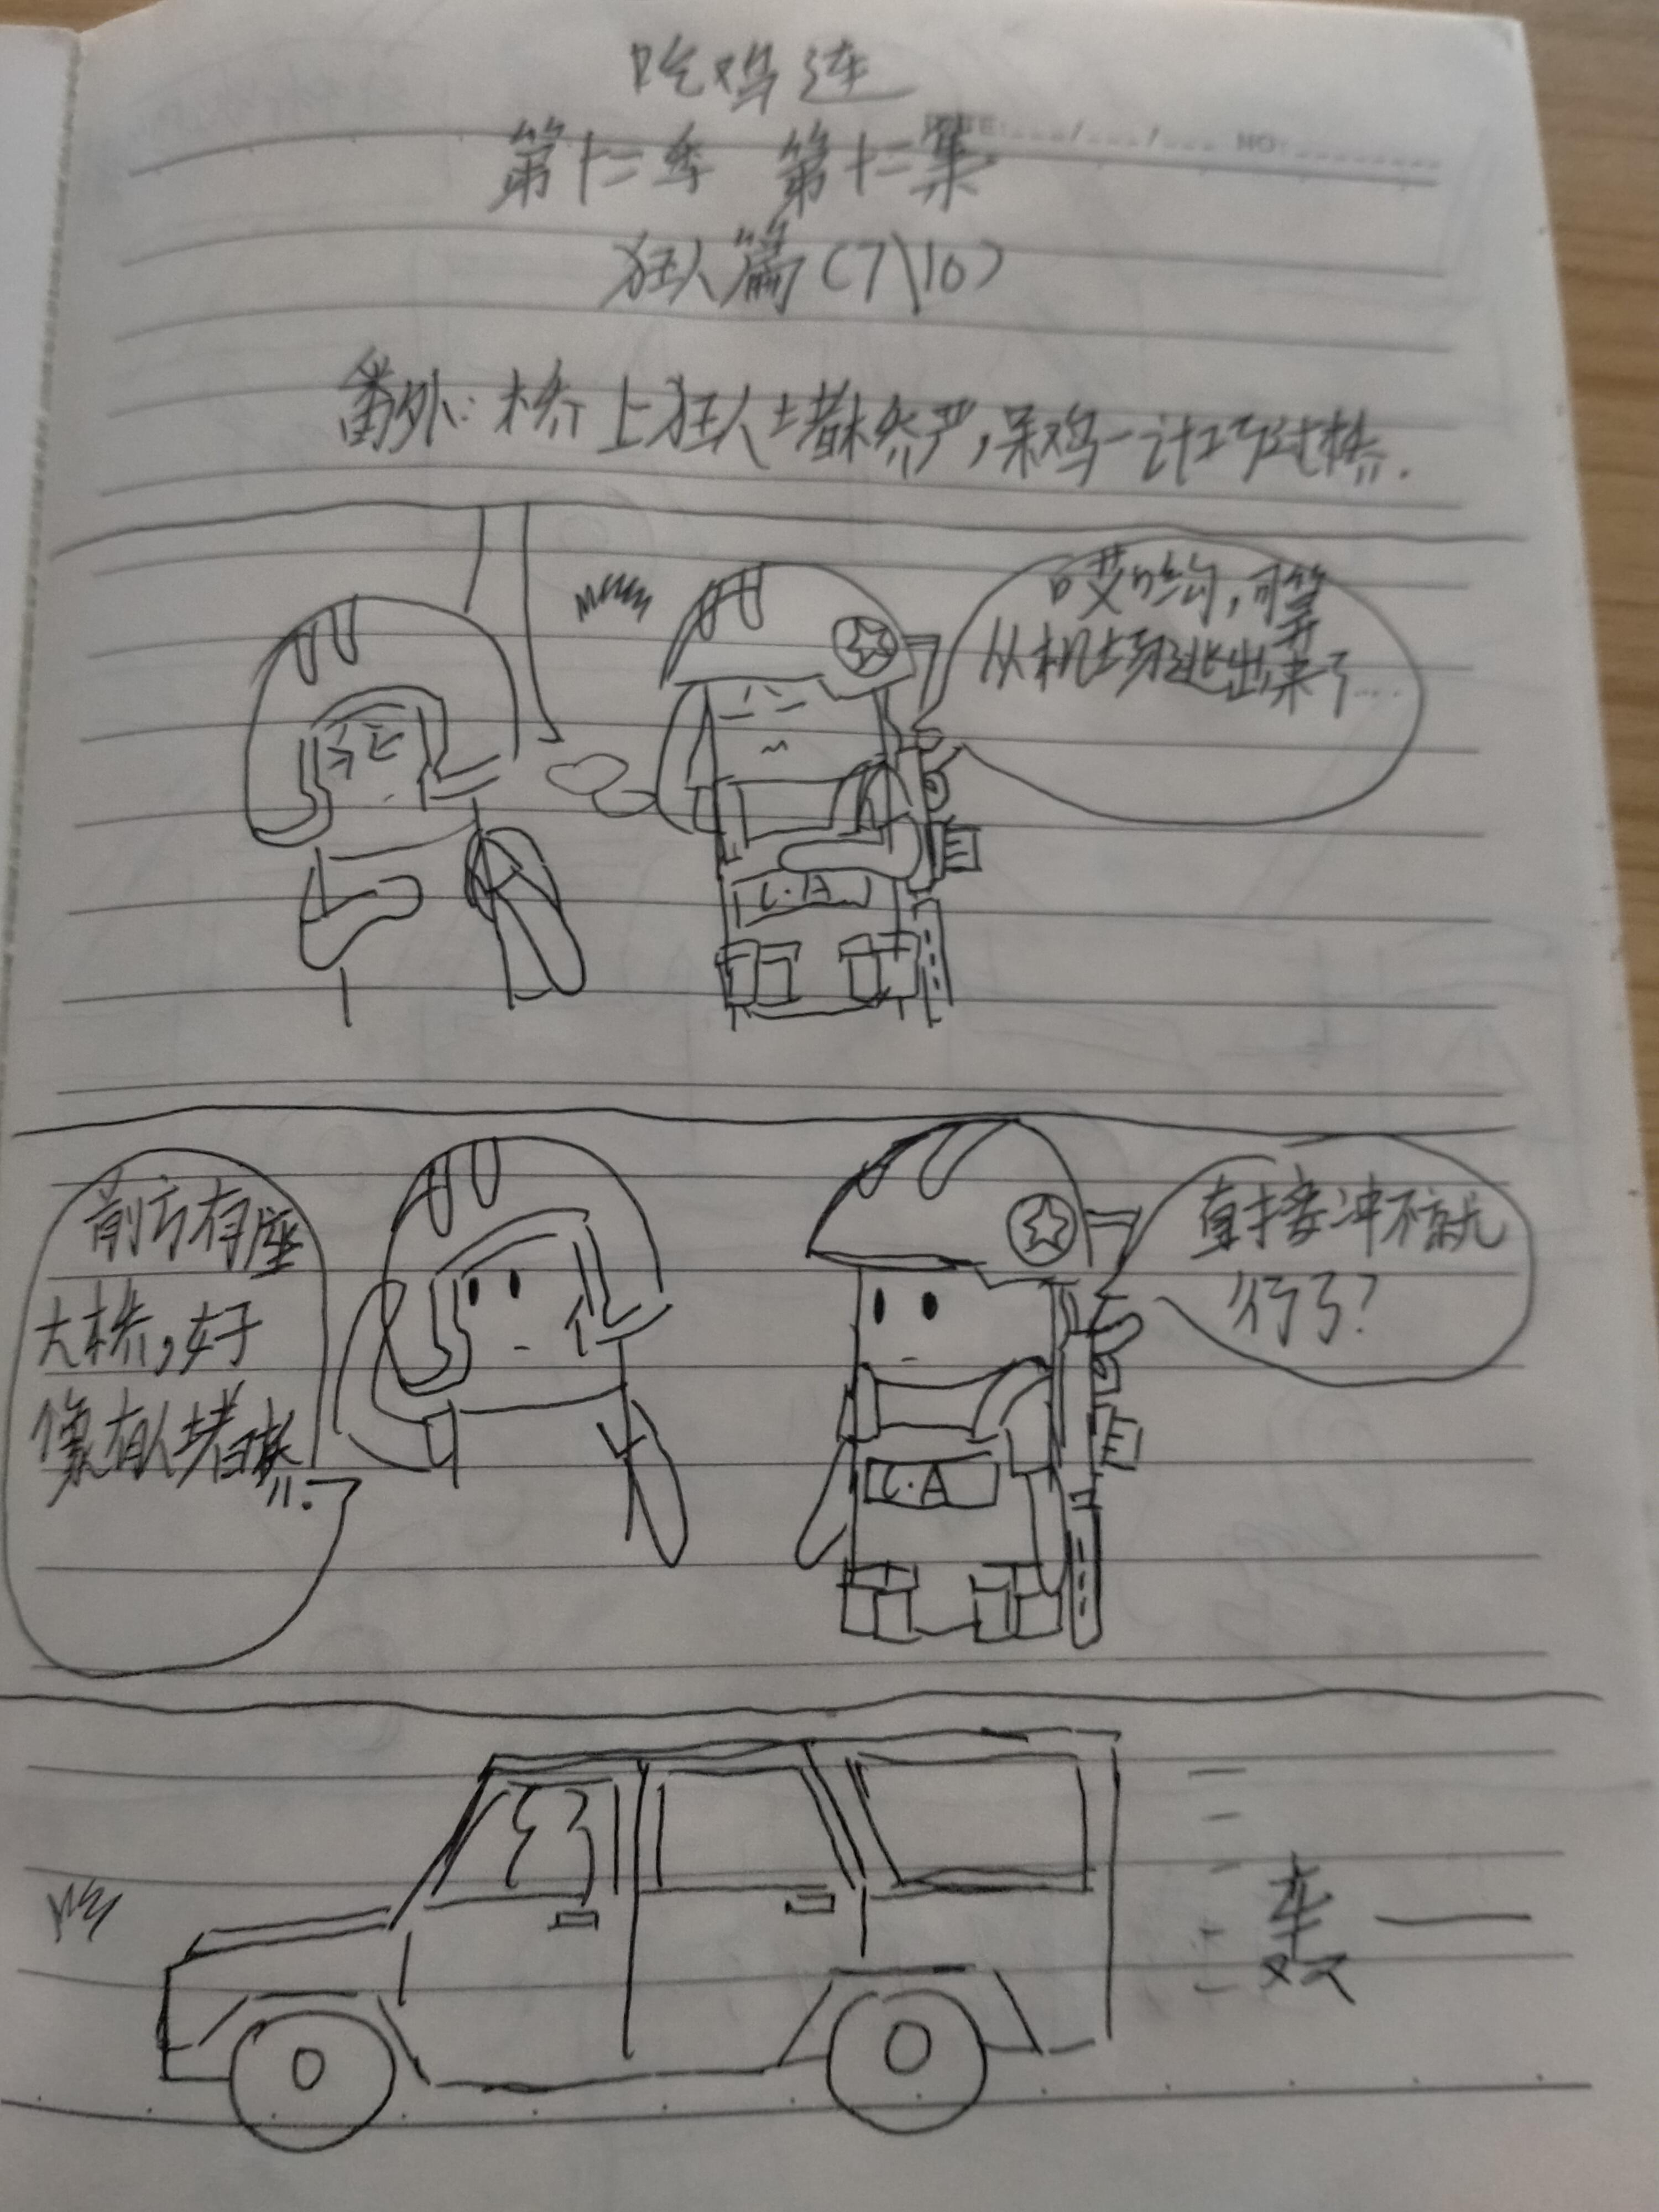 吃鸡连
DATE: ___/___/___ NO:
第十二季 第十二集
狂人篇(7\10)
番外:桥上狂人堵桥严,呆鸡一计巧过桥.
哎哟,可算
从机场逃出来了...
C.A
前方有座
大桥,好
像有人堵桥.
直接冲不就
行了?
C.A
轰—